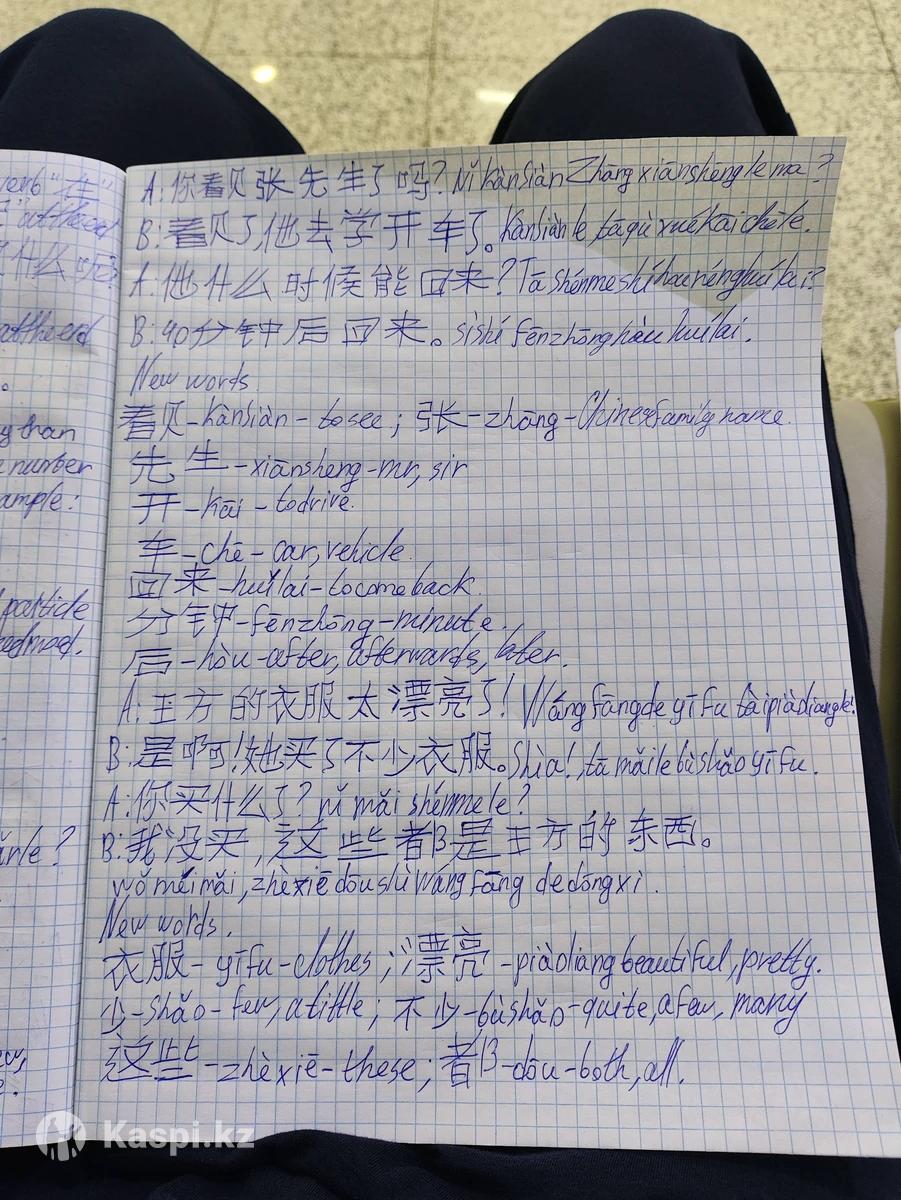 verb "在"
什么呢?
y than
number
ample:
particle
A: 你看见张先生了吗? Nǐ kànjiàn Zhāng xiānshēng le ma?
B: 看见了,他去学开车了。Kànjiàn le, tā qù xué kāi chē le.
A: 他什么时候能回来? Tā shénme shíhou néng huí lái?
B: 40分钟后回来。sìshí fēnzhōng hòu huí lái.
New words
看见-kànjiàn-to see; 张-zhāng-Chinese family name
先生-xiānsheng-mr, sir
开-kāi-to drive.
车-chē-car, vehicle
回来-huí lai-to come back.
分钟-fēnzhōng-minute.
后-hòu-after, afterwards, later.
A: 王方的衣服太漂亮了! Wáng fāng de yīfu tài piàoliang le!
B: 是啊!她买了不少衣服。Shì a!, tā mǎi le bù shǎo yīfu.
A: 你买什么了? nǐ mǎi shénme le?
B: 我没买,这些都是王方的东西。
wǒ méi mǎi, zhè xiē dōu shì Wáng Fāng de dōng xi.
New words.
衣服-yīfu-clothes; 漂亮-piàoliang beautiful, pretty.
少-shǎo-few, a little; 不少-bù shǎo-quite, a few, many
这些-zhè xiē-these; 都-dōu-both, all.
Kaspi.kz